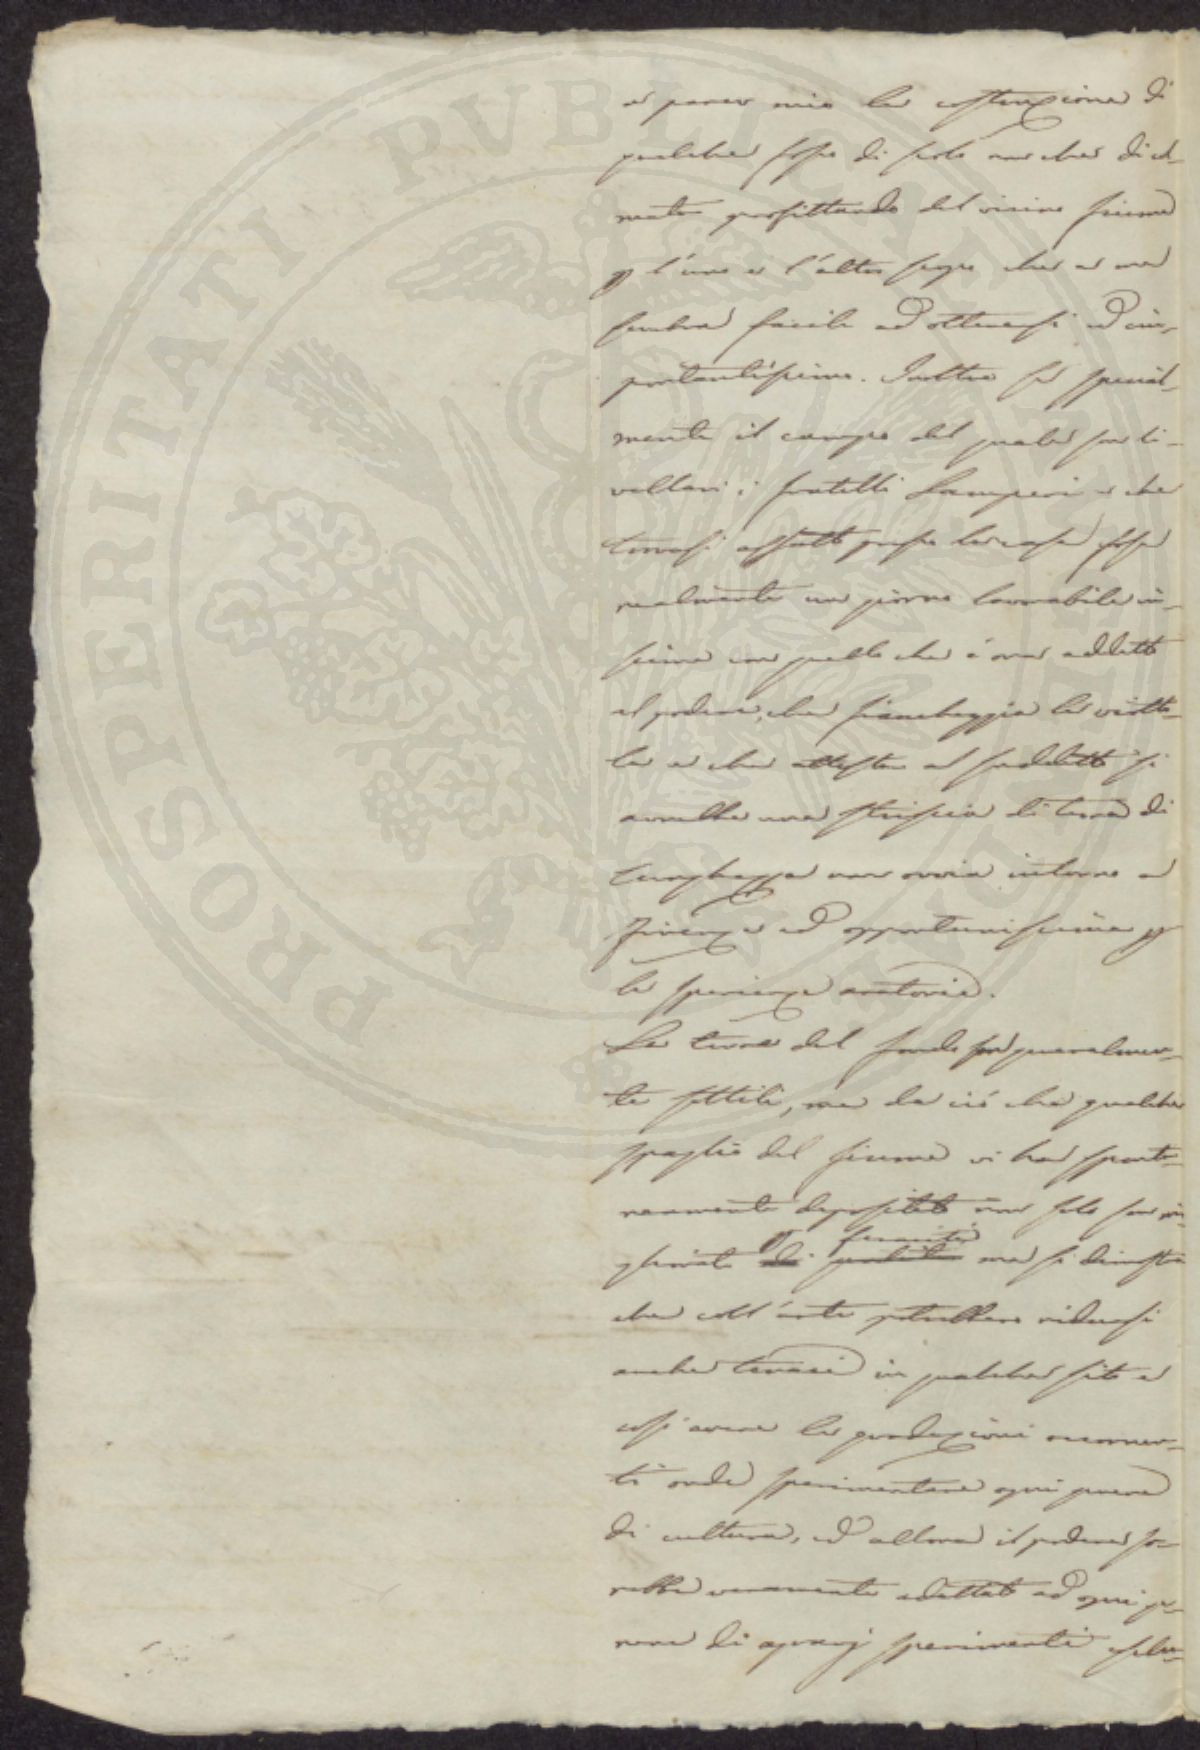 a parer mio la costruzione di
qualche fossa di scolo non che di col-
mata profittando del vicino fiume
p l'uno e l'altro scopo che a me
sembra facile ad ottenersi ed im-
portantissimo. Inoltre se special-
mente il campo del quale son li-
vellari i fratelli Lamperi e che
trovasi affatto presso la casa fosse
realmente un giorno lavorabile in-
sieme con quello che è ora addetto
al podere, che fiancheggia la viotto-
la e che attesta al suddetto si
avrebbe una striscia di terra di
lunghezza non ovvia intorno a
Firenze ed opportunissima p
le sperienze aratorie.
Le terre del fondo son generalmen-
te sottili, ma da ciò che qualche
spaglio del fiume vi ha sponta-
neamente depositato non solo son mi-
gliorate p feracità ma si dimostra
che coll'arte potrebbero ridursi
anche tenaci in qualche sito e
così avere le produzioni occorren-
ti onde sperimentare ogni genere
di cultura, ed allora il podere sa-
rebbe veramente adattato ad ogni ge-
nere di agrarj sperimenti esclu-
PROSPERITATI PVBLICAE